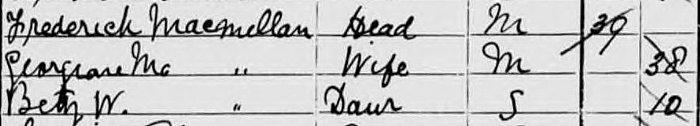 Frederick Macmellan Head M 39
Georgiane Mc " Wife M 38
Betty W. " Daur S 10